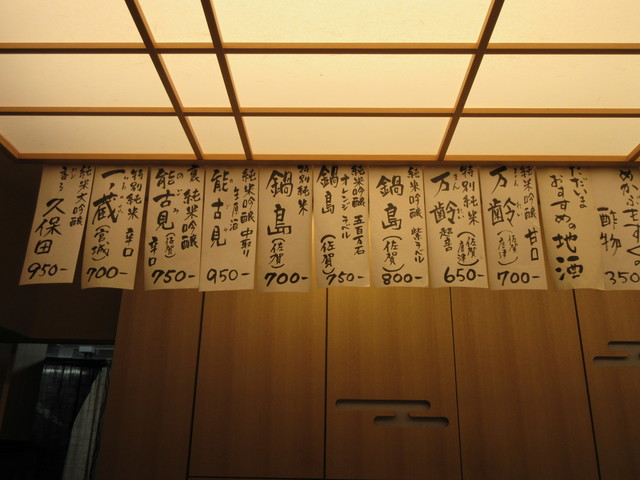 めかぶもずくの
酢物
350
ただいま
おすすめの地酒
純米吟醸 甘口
万齢
(佐賀唐津)
700-
特別純米
万齢 超辛
(佐賀唐津)
650-
純米吟醸 紫ラベル
鍋島
(佐賀)
800-
純米吟醸 五百万石
オレンジラベル
鍋島
(佐賀)
750-
特別純米
鍋島
(佐賀)
700-
純米吟醸 中取り
生原酒
能古見
950-
純米吟醸
能古見
のごみ
(佐賀) 辛口
750-
特別純米 辛口
一ノ蔵
(宮城)
700-
純米大吟醸
久保田
950-